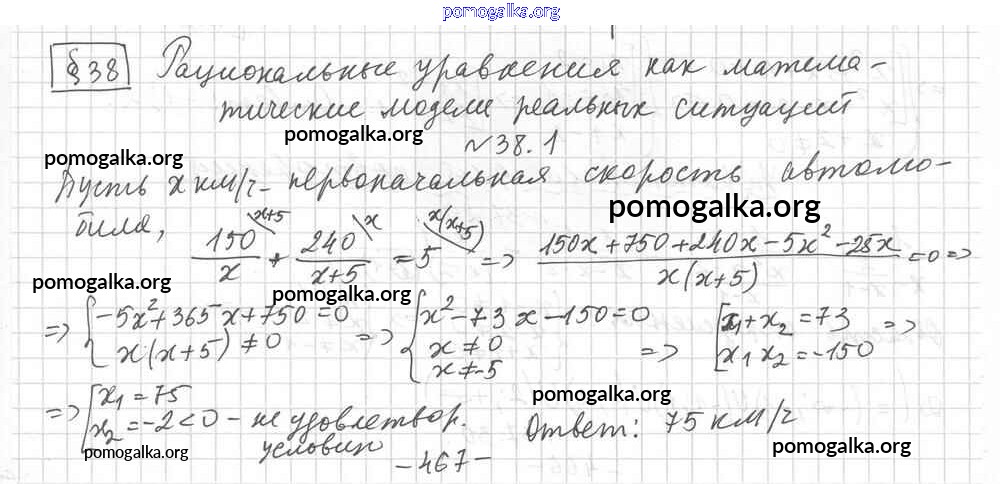 pomogalka.org
§38 Рациональные уравнения как матема-
тические модели реальных ситуаций
pomogalka.org
№38.1
pomogalka.org
Пусть x км/ч - первоначальная скорость автомо-
pomogalka.org
биля, 150/x \x+5 + 240/(x+5) \x = 5 \x(x+5) => (150x+750+240x-5x²-25x)/(x(x+5)) =0 =>
pomogalka.org pomogalka.org
=> {-5x²+365x+750=0 => {x²-73x-150=0 => [x₁+x₂=73 =>
x(x+5)≠0 x≠0 x₁x₂=-150
x≠-5
pomogalka.org
=> [x₁=75
x₂=-2<0 - не удовлетвор. Ответ: 75 км/ч
условию
pomogalka.org pomogalka.org
-467-